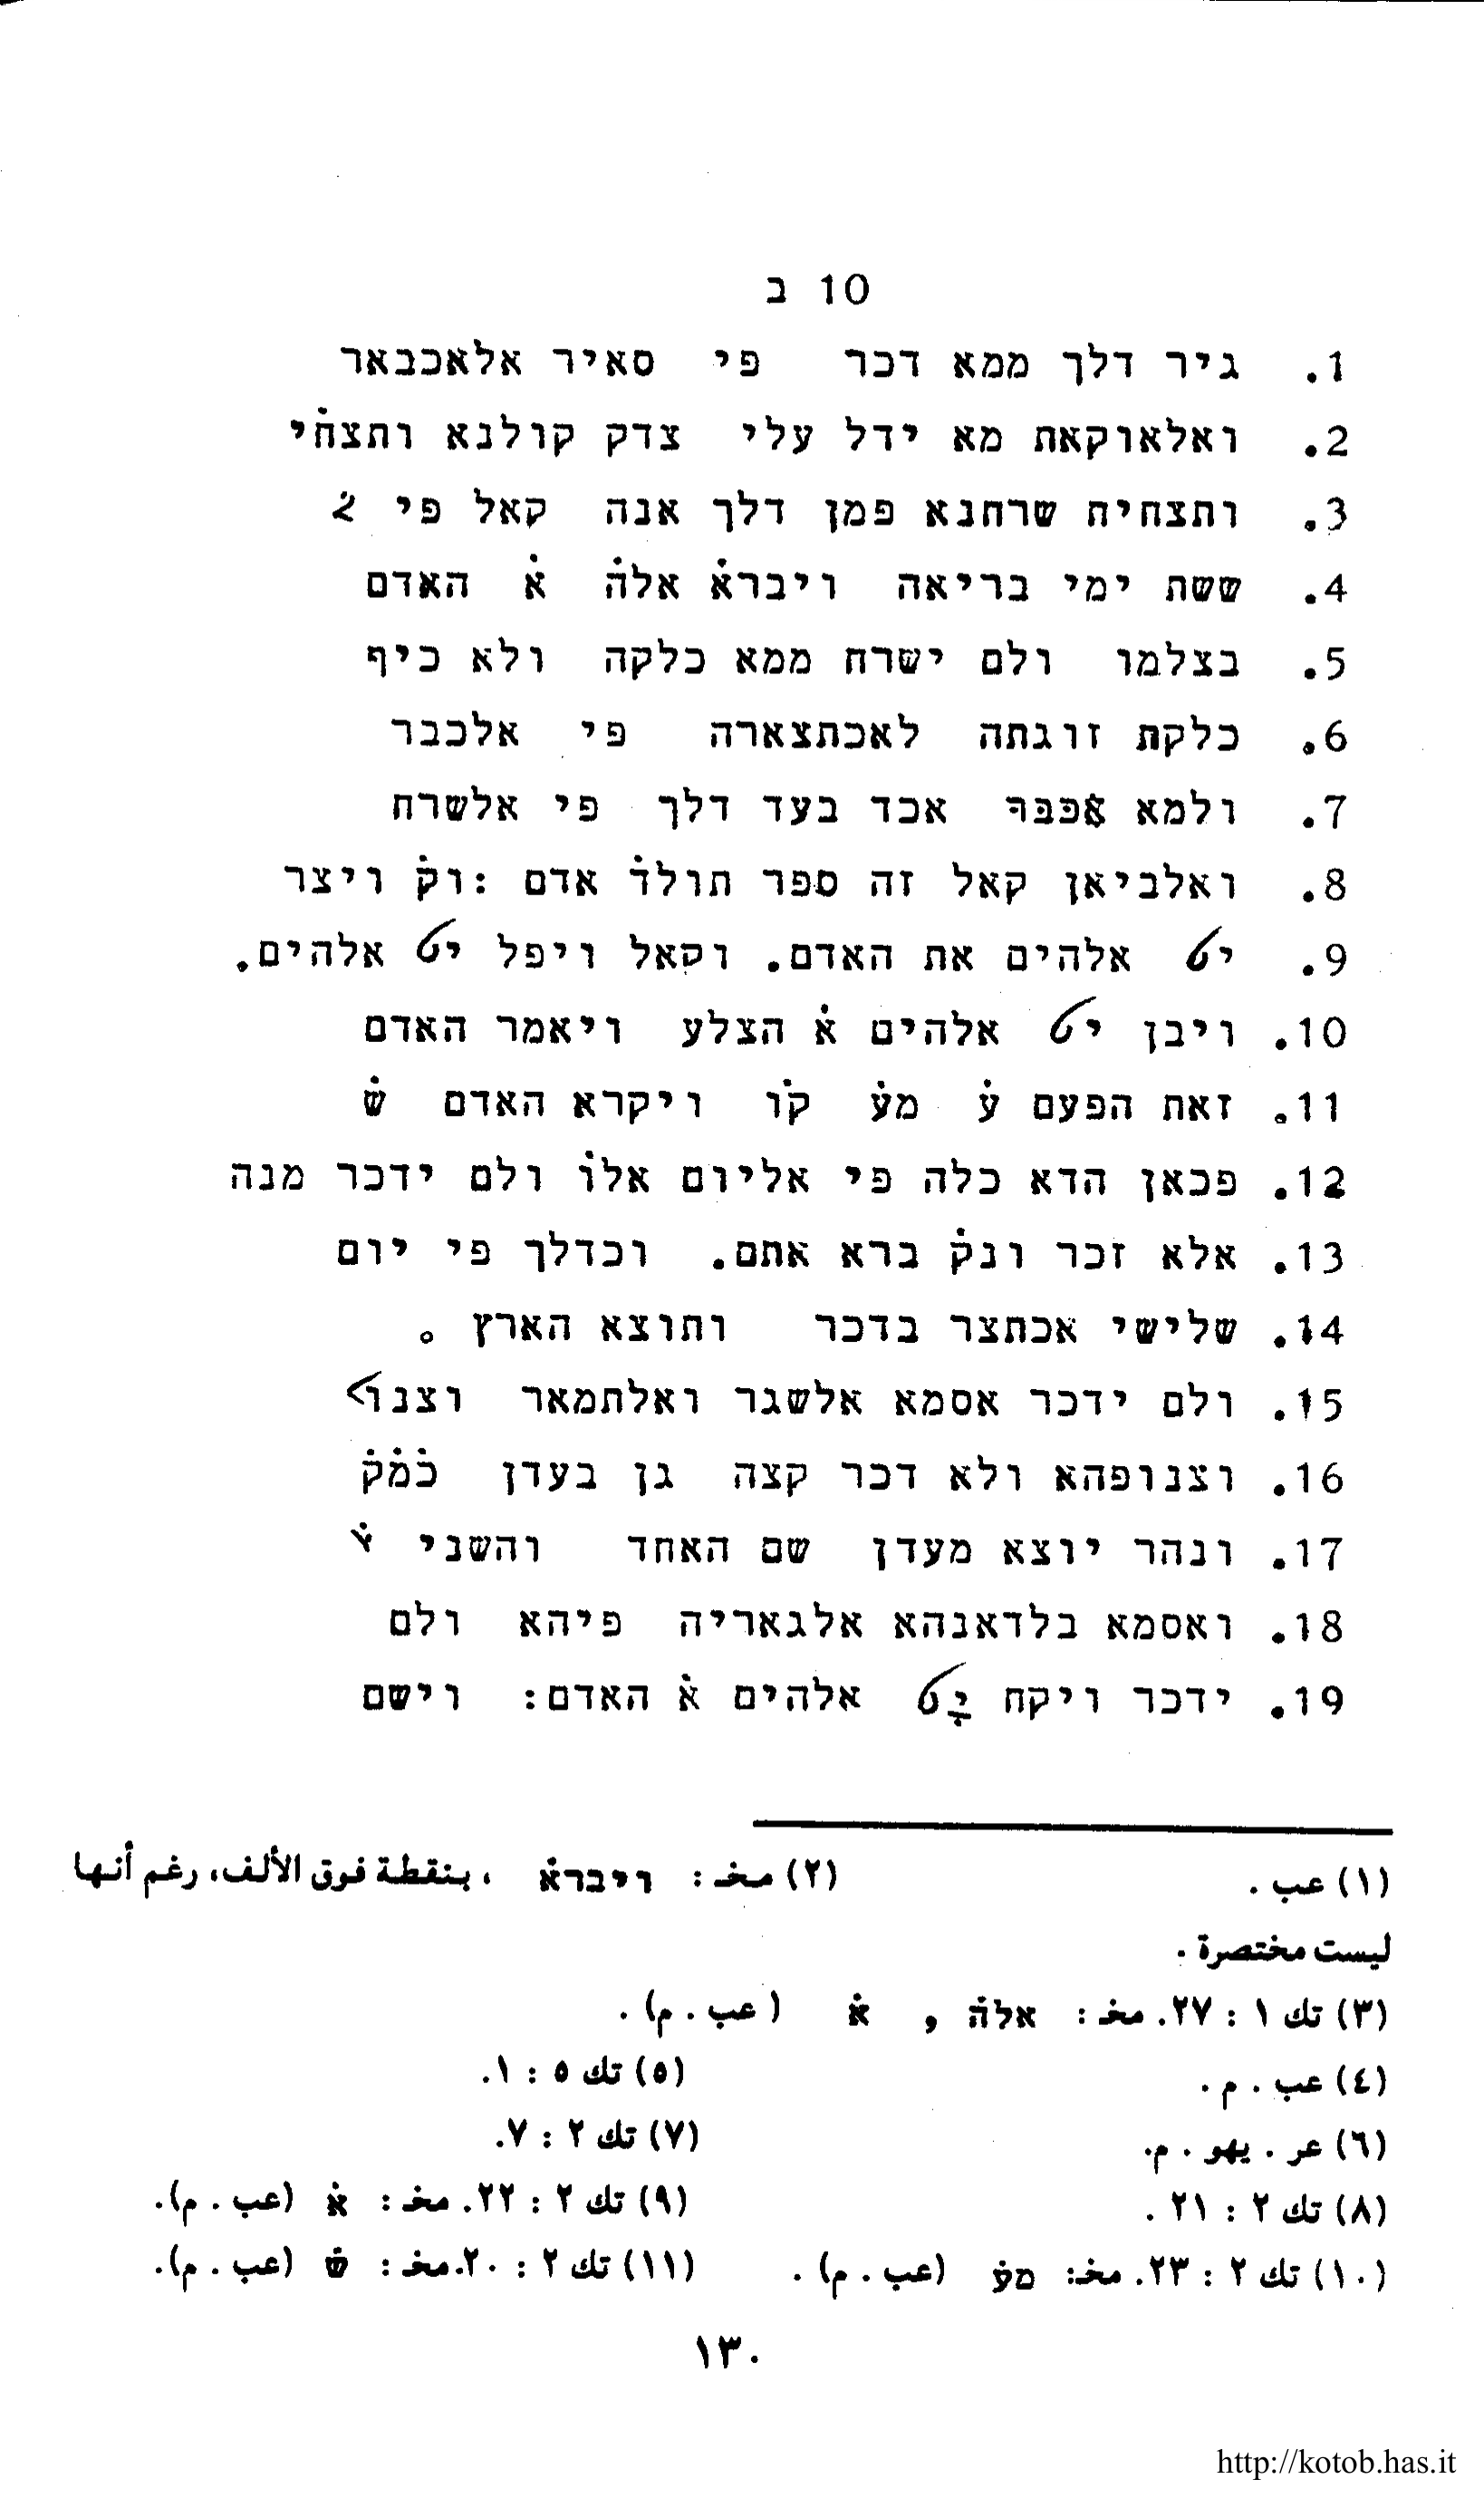 10 ב
1. גיר דלך ממא דכר פי סאיר אלאכבאר
2. ואלאוקאת מא ידל עלי צדק קולנא ותצחׄי
3. ותצחיח שרחנא פמן דלך אנה קאל פי
4. ששת ימי בריאה ויבראׄ אלהׄ אׄ האדם
5. בצלמו ולם ישרח ממא כלקה ולא כיף
6. כלקת זוגתה לאכתצארה פי אלכבר
7. ולמא אכד בעד דלך פי אלשרח
8. ואלביאן קאל זה ספר תולדׄ אדם :וקׄ ויצר
9. אלהים את האדם. וקאל ויפל אלהים.
10. ויבן אלהים אׄ הצלע ויאמר האדם
11. זאת הפעם עׄ מעׄ קוׄ ויקרא האדם שׄ
12. פכאן הדא כלה פי אליום אלוׄ ולם ידכר מנה
13. אלא זכר ונקׄ ברא אתם. וכדלך פי יום
14. שלישי אכתצר בדכר ותוצא הארץ
15. ולם ידכר אסמא אלשגר ואלתמאר וצנו
16. וצנופהא ולא דכר קצה גן בעדן כׄמׄקׄ
17. ונהר יוצא מעדן שם האחד והשני
18. ואסמא בלדאנהא אלגאריה פיהא ולם
19. ידכר ויקח אלהים אׄ האדם: וישם
(١) عب . (٢) مخـ : ויבראׄ ، بنقطة فوق الألف، رغم أنها
ليست مختصرة .
(٣) تك ١ : ٢٧. مخـ : אלהׄ , אׄ (عب . م) .
(٤) عب . م. (٥) تك ٥ : ١.
(٦) عر . يهو . م. (٧) تك ٢ : ٧.
(٨) تك ٢ : ٢١ . (٩) تك ٢ : ٢٢. مخـ : אׄ (عب . م).
(١٠) تك ٢ : ٢٣. مخـ: מעׄ (عب . م) . (١١) تك ٢ : ٢٠. مخـ : שׄ (عب . م).
١٣٠
http://kotob.has.it